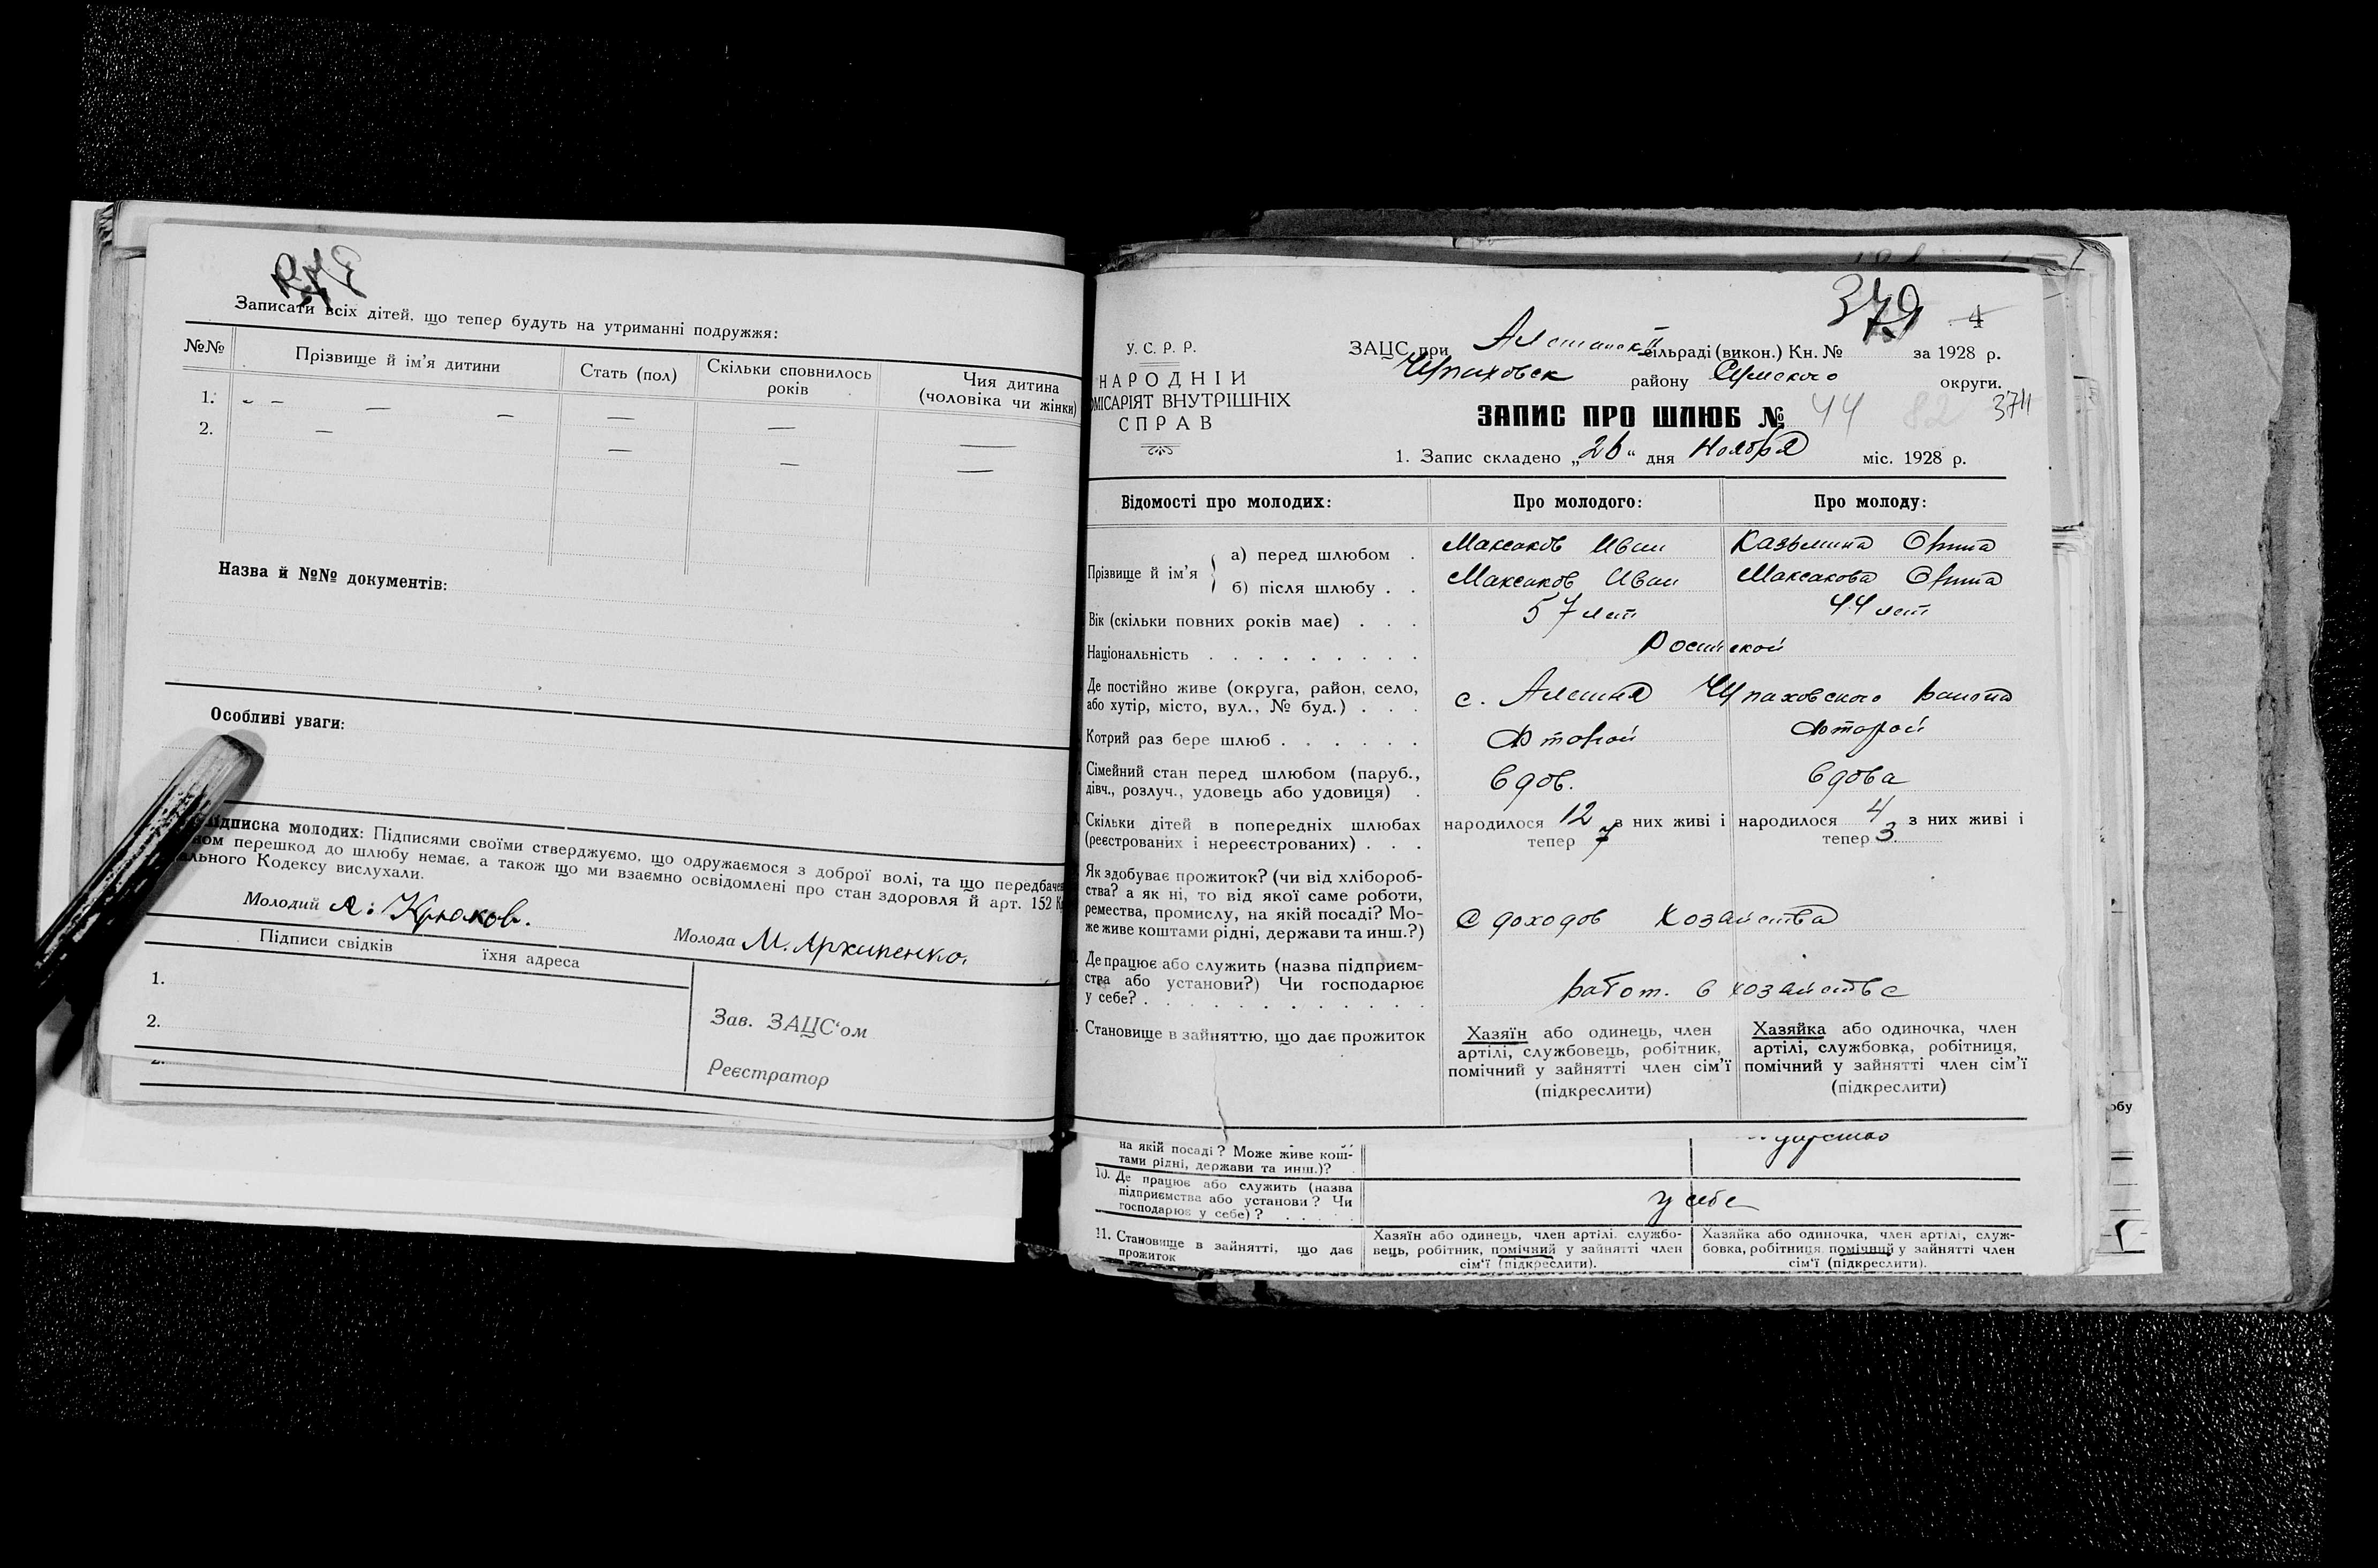 Записати всіх дітей, що тепер будуть на утриманні подружжя:
№№ Прізвище й ім'я дитини Стать (пол) Скільки сповнилось років Чия дитина (чоловіка чи жінки)
1. - - — — — — —
2. — — — —
Назва й №№ документів:
Особливі уваги:
підписка молодих: Підписями своїми стверджуємо, що одружаємося з доброї волі, та що передбачен
ном перешкод до шлюбу немає, а також що ми взаємно освідомлені про стан здоровля й арт. 152 К
ального Кодексу вислухали.
Молодий А. Крюков.
Молода М. Архипенко.
Підписи свідків їхня адреса
1.
2.
Зав. ЗАЦС'ом
Реєстратор
379 4
У. С. Р. Р.
НАРОДНІЙ
ОМІСАРІЯТ ВНУТРІШНІХ
СПРАВ
ЗАЦС при сільраді (викон.) Кн. № за 1928 р.
району Сумского округи.
374
ЗАПИС ПРО ШЛЮБ № 44 82
1. Запис складено „26“ дня Ноября міс. 1928 р.
Відомості про молодих: Про молодого: Про молоду:
Прізвище й ім'я
а) перед шлюбом . Максаков Иван Казьмина Орина
б) після шлюбу . . Максаков Иван Максакова Орина
Вік (скільки повних років має) . . . 57 лет 44 лет
Національність . . . . . . . . . Росийской
Де постійно живе (округа, район, село,
або хутір, місто, вул., № буд.) . . . с. Алешня района
Котрий раз бере шлюб . . . . . . Второй Второй
Сімейний стан перед шлюбом (паруб.,
дівч., розлуч., удовець або удовиця) . вдов. вдова
Скільки дітей в попередніх шлюбах
(реєстрованих і нереєстрованих) . . .
народилося 12 з них живі і тепер 7
народилося 4 з них живі і тепер 3.
Як здобуває прожиток? (чи від хлібороб-
ства? а як ні, то від якої саме роботи,
ремества, промислу, на якій посаді? Мо-
же живе коштами рідні, держави та инш.?)
С доходов хозайства
Де працює або служить (назва підприєм-
ства або установи?) Чи господарює
у себе? . . . . . . . . . . . . .
работ. в хозайстве
Становище в зайняттю, що дає прожиток
Хазяїн або одинець, член
артілі, службовець, робітник,
помічний у зайнятті член сім'ї
(підкреслити)
Хазяйка або одиночка, член
артілі, службовка, робітниця,
помічний у зайнятті член сім'ї
(підкреслити)
на якій посаді? Може живе кош-
тами рідні, держави та инш.)?
10. Де працює або служить (назва
підприємства або установи? Чи
господарює у себе)? . . . . .
у себе
11. Становище в зайнятті, що дає
прожиток
Хазяїн або одинець, член артілі, службо-
вець, робітник, помічний у зайнятті член
сім'ї (підкреслити).
Хазяйка або одиночка, член артілі, служ-
бовка, робітниця, помічний у зайнятті член
сім'ї (підкреслити).
обу